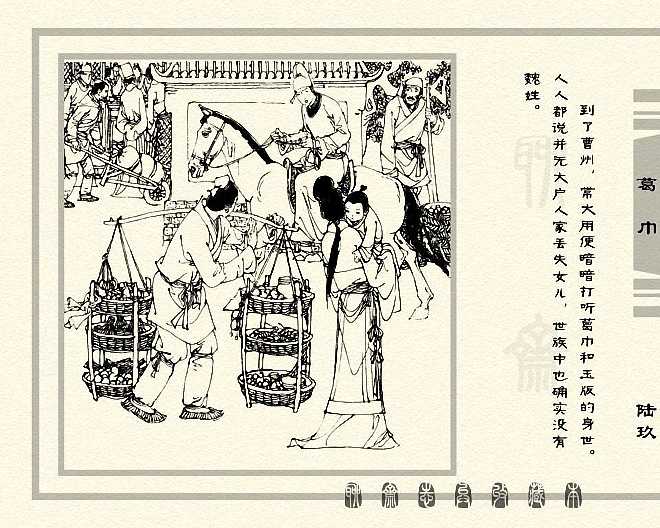 到了曹州，常大用便暗暗打听葛巾和玉版的身世。
人人都说并无大户人家丢失女儿，世族中也确实没有
魏姓。
葛巾
陆玖